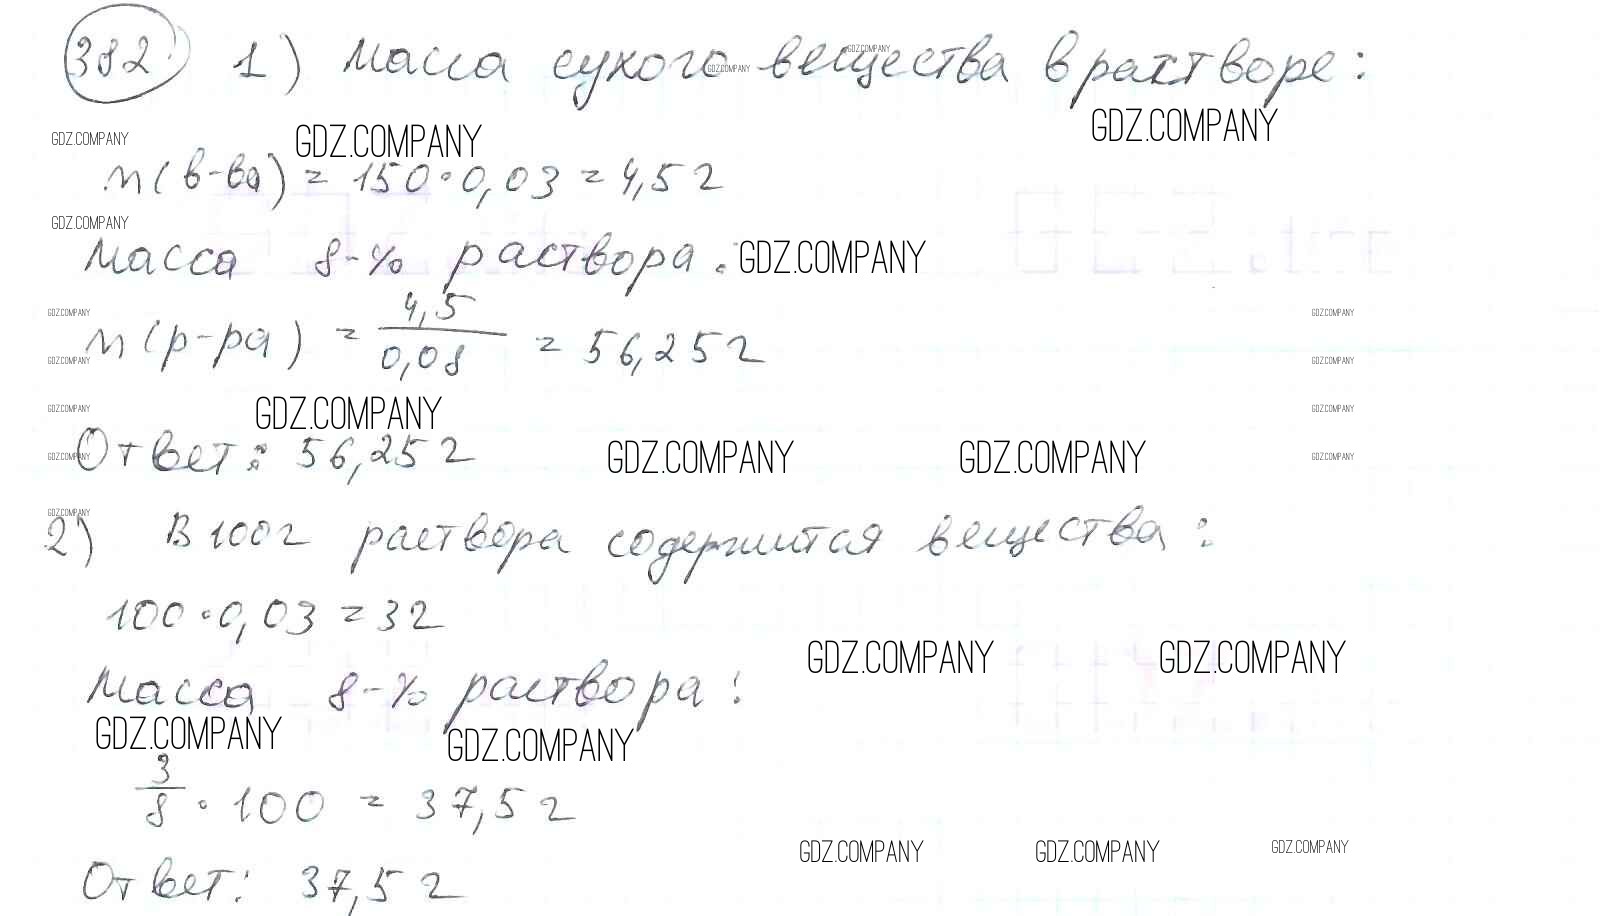 382 1) Масса сухого вещества в растворе:
GDZ.COMPANY
GDZ.COMPANY
GDZ.COMPANY GDZ.COMPANY GDZ.COMPANY
m(в-ва) = 150·0,03 = 4,5 г
GDZ.COMPANY
Масса 8-% раствора: GDZ.COMPANY
GDZ.COMPANY GDZ.COMPANY
m(р-ра) = 4,5/0,08 = 56,25 г
GDZ.COMPANY GDZ.COMPANY
GDZ.COMPANY GDZ.COMPANY GDZ.COMPANY
Ответ: 56,25 г
GDZ.COMPANY GDZ.COMPANY GDZ.COMPANY GDZ.COMPANY
GDZ.COMPANY
2) В 100 г раствора содержится вещества:
100·0,03 = 3 г
GDZ.COMPANY GDZ.COMPANY
Масса 8-% раствора:
GDZ.COMPANY GDZ.COMPANY
3/8 · 100 = 37,5 г
GDZ.COMPANY GDZ.COMPANY GDZ.COMPANY
Ответ: 37,5 г